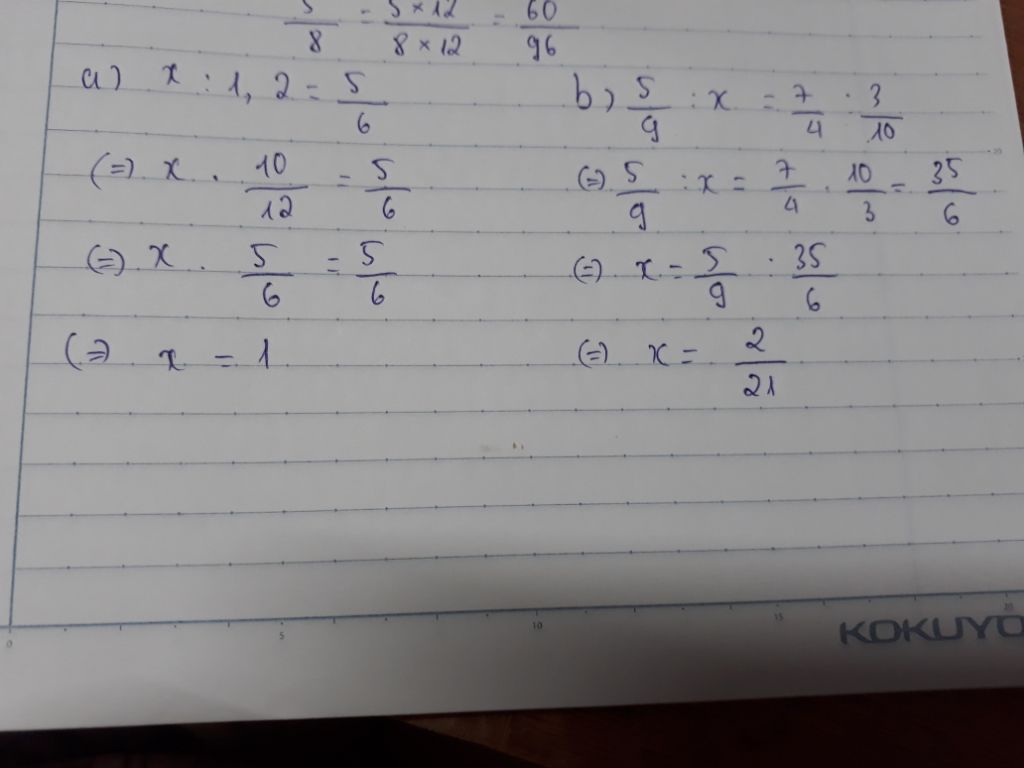 5/8 = 5×12/8×12 = 60/96
a) x : 1,2 = 5/6
(=) x . 10/12 = 5/6
(=) x . 5/6 = 5/6
(=) x = 1
b) 5/9 : x = 7/4 . 3/10
(=) 5/9 : x = 7/4 . 10/3 = 35/6
(=) x = 5/9 : 35/6
(=) x = 2/21
20
0 5 10 15 20
KOKUYO